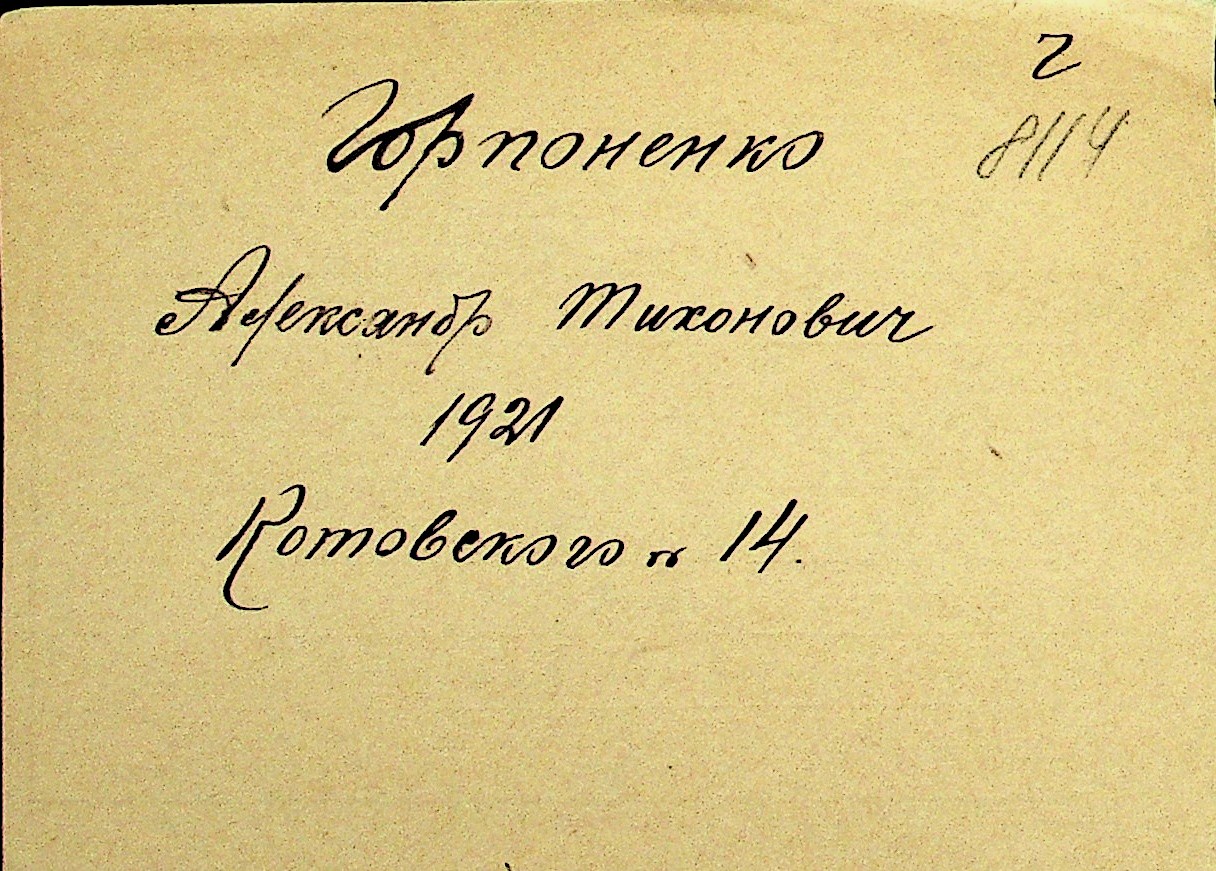 г
8114
Горпоненко
Александр Тихонович
1921
Котовского 14.